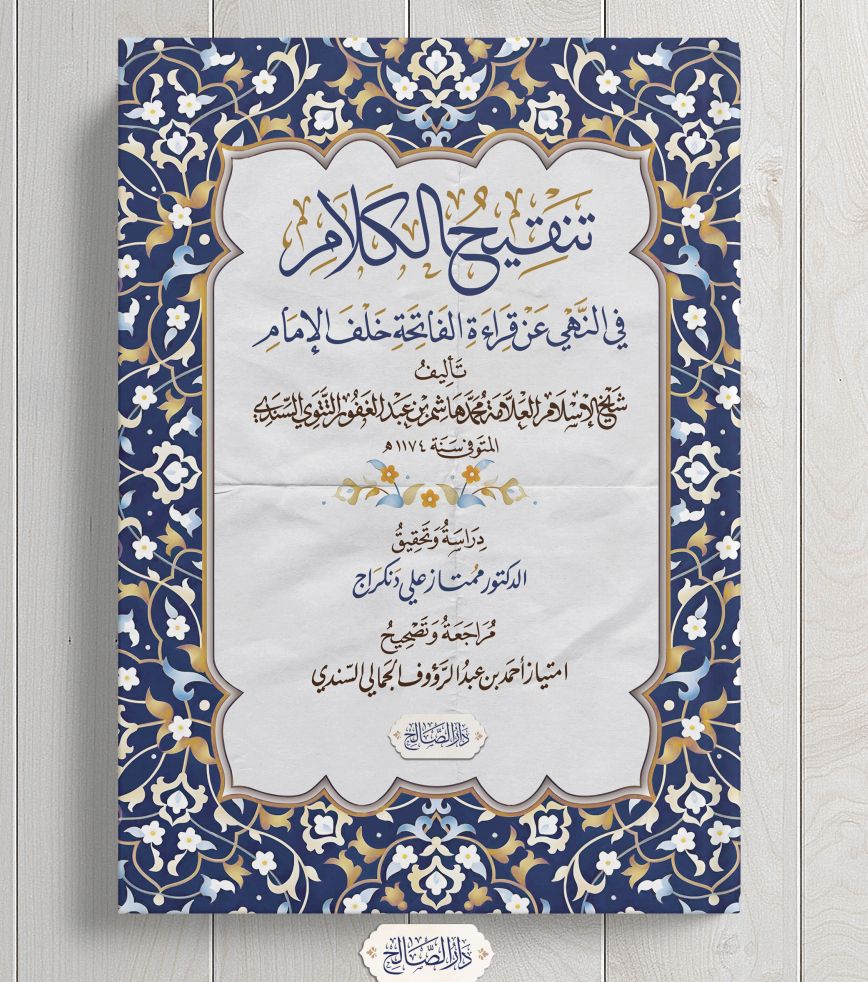 تنقيح الكلام
في النهي عن قراءة الفاتحة خلف الإمام
تأليف
شيخ الإسلام العلامة محمد هاشم بن عبد الغفور التتوي السندي
المتوفى سنة ١١٧٤ هـ
دراسة وتحقيق
الدكتور ممتاز علي دنكراج
مراجعة وتصحيح
امتياز أحمد بن عبد الرؤوف الجمالي السندي
دار الصالح
دار الصالح